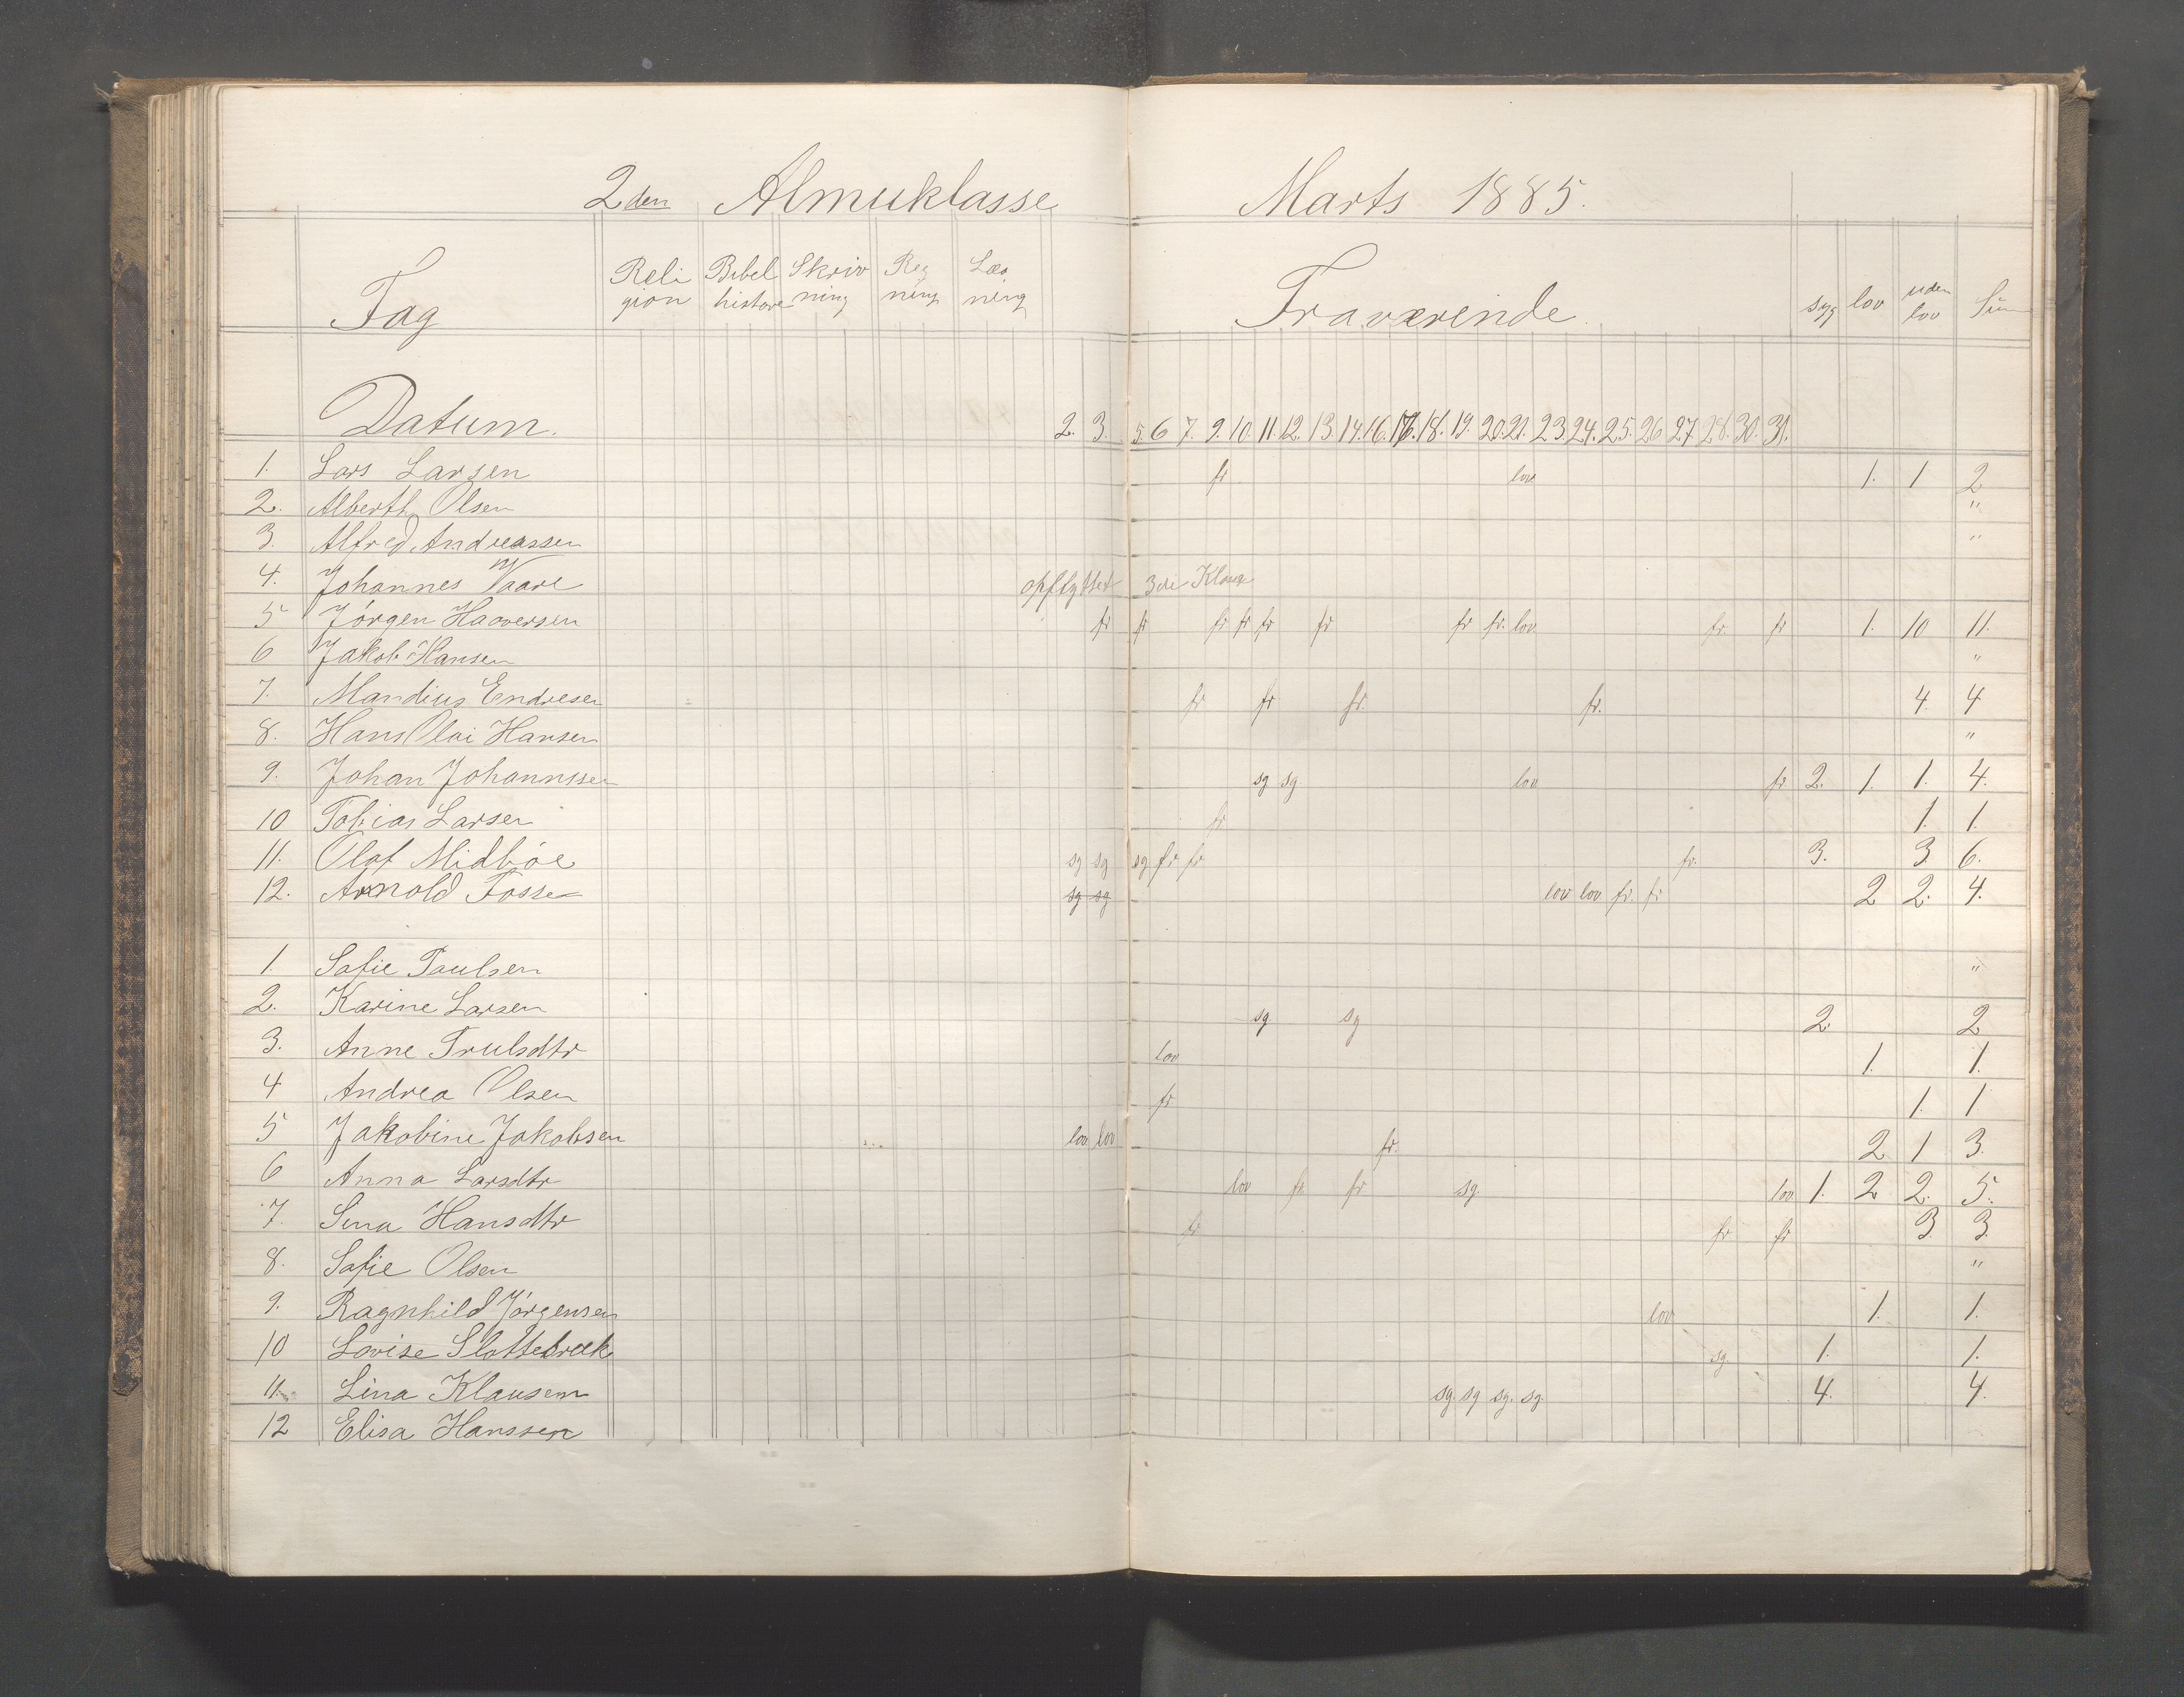 2den Almuklasse Marts 1885.
Fag Reli gion Bibel historie Skriv ning Reg ning Læs ning Fraværende syg lov uden lov Sum
Datum. 2. 3. 5. 6 7. 9. 10. 11. 12. 13. 14. 16. 17. 18. 19. 20. 21. 23. 24. 25. 26 27. 28. 30. 31.
1. Lars Larsen fr lov 1. 1 2
2. Alberth Olsen "
3. Alfred Andreassen "
4. Johannes Vaare opflyttet 3die Klasse
5 Jörgen Haaversen fr fr fr fr fr fr fr fr. lov fr. fr 1. 10 11.
6 Jakob Hansen "
7. Mandius Endresen fr fr fr. fr. 4 4
8. Hans Olai Hansen "
9. Johan Johannssen sg sg lov fr 2. 1. 1. 4.
10 Tobias Larsen fr 1. 1.
11. Olaf Midböe sg sg sg fr fr fr. 3. 3. 6.
12. Arnold Fosse sg sg lov lov fr. fr 2 2. 4.
1. Sofie Paulsen "
2. Karine Larsen sg sg 2. 2
3. Anne Trulsdtr lov 1. 1.
4 Andrea Olsen fr 1. 1
5 Jakobine Jakobsen lov lov fr. 2 1 3.
6 Anna Larsdtr lov fr. fr sg. lov 1. 2 2. 5.
7. Sina Hansdtr fr fr fr 3. 3.
8. Sofie Olsen "
9. Ragnhild Jörgensen lov 1. 1.
10 Lovise Slottebræk sg. 1. 1.
11. Lina Klausen sg. sg sg. sg. 4. 4.
12 Elisa Hanssen